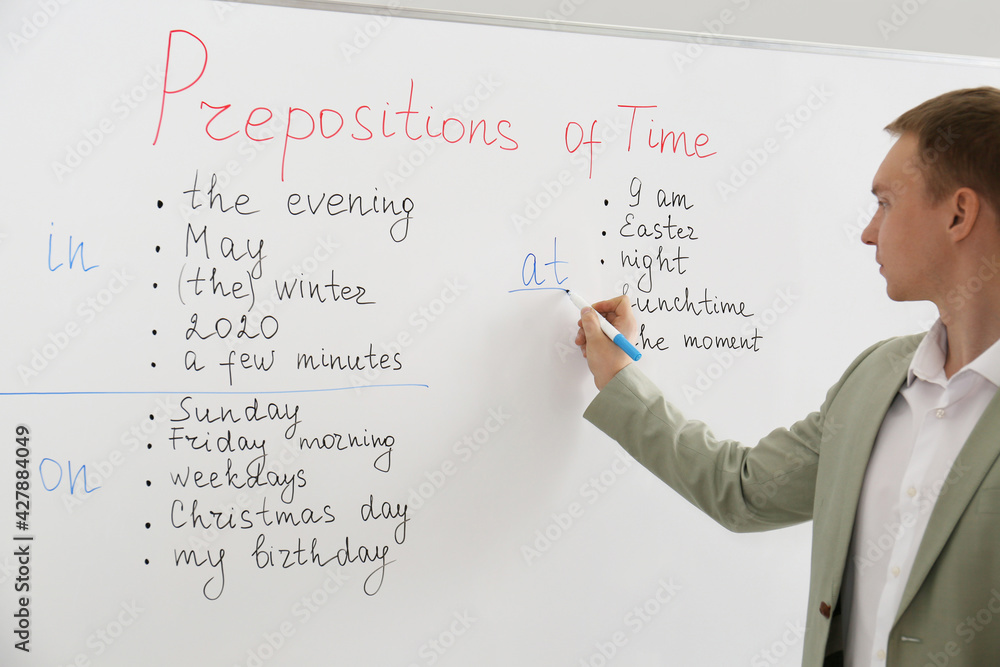 Prepositions of Time
in
• the evening
• May
• (the) winter
• 2020
• a few minutes
on
• Sunday
• Friday morning
• weekdays
• Christmas day
• my birthday
at
• 9 am
• Easter
• night
lunchtime
the moment
Adobe Stock | #427884049